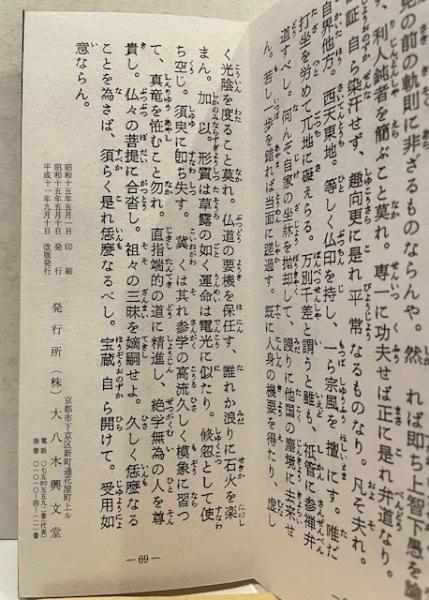 見の前の軌則に非ざるものならんや。然れば即ち上智下愚を論
ず、利人鈍者を簡ぶこと莫れ。専一に功夫せば正に是れ弁道なり。
証、自ら染汙せず、趣向更に是れ平常なるものなり。凡そ夫れ。
自界他方。西天東地。等しく仏印を持し、一ら宗風を擅にす。唯だ
打坐を努めて兀地に礙えらる。万別千差と謂うと雖も、祇管に参禅弁
道すべし。何んぞ自家の坐牀を抛却して、謾りに他国の塵境に去来せ
ん。若し一歩を錯れば当面に蹉過す。既に人身の機要を得たり、虚し
く光陰を度ること莫れ。仏道の要機を保任す、誰れか浪りに石火を楽
まん。加以。形質は草露の如く運命は電光に似たり。倐忽として使
ち空じ。須臾に卽ち失す。冀くは其れ参学の高流久しく模象に習つ
て、真竜を恠むこと勿れ。直指端的の道に精進し、絶学無為の人を尊
貴し。仏々の菩提に合沓し。祖々の三昧を嫡嗣せよ。久しく恁麼なる
ことを為さば、須らく是れ恁麼なるべし。宝蔵自ら開けて。受用如
意ならん。
昭和十五年五月一日 印刷
昭和十五年五月十日 発行
平成十一年九月十日 改版発行
京都市下京区新町通花屋町上ル
発行所 (株)大八木興文堂
—69—